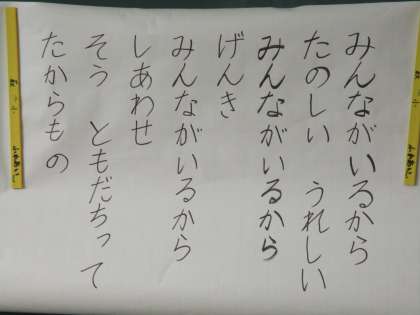 みんながいるから
たのしい　うれしい
みんながいるから
げんき
みんながいるから
しあわせ
そう　ともだちって
たからもの